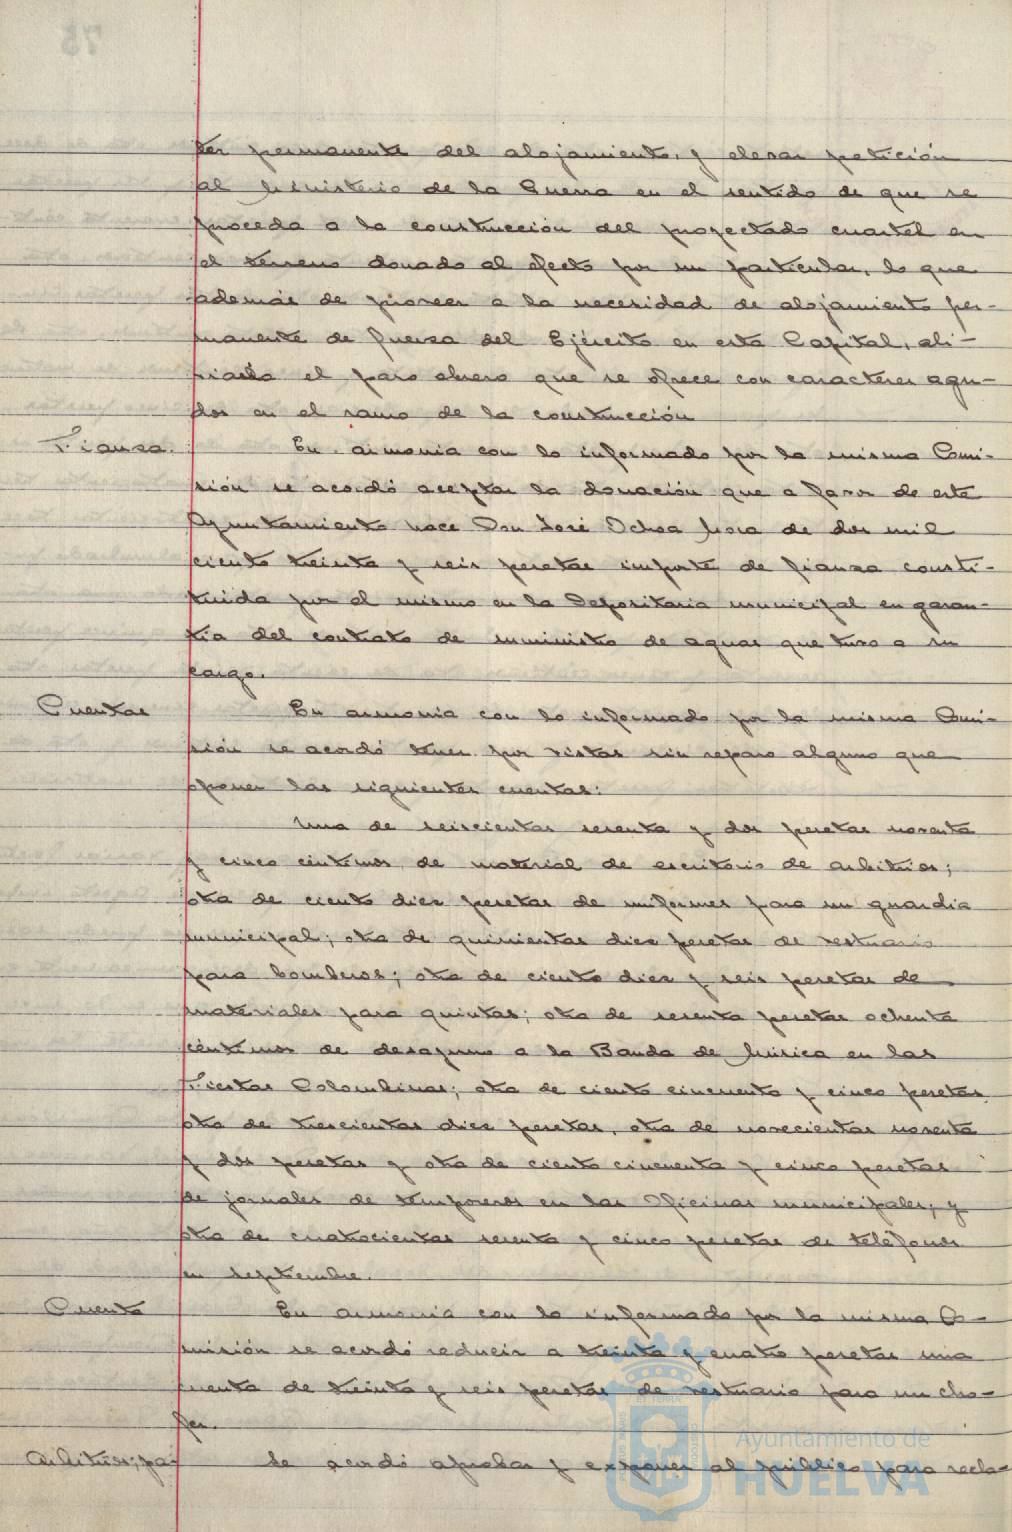 ter permanente del alojamiento, y elevar petición
al Ministerio de la Guerra en el sentido de que se
proceda a la construcción del proyectado cuartel en
el terreno donado al efecto por un particular, lo que
además de proveer a la necesidad de alojamiento per-
manente de fuerza del Ejército en esta Capital, ali-
viaría el paro obrero que se ofrece con caracteres agu-
dos en el ramo de la construcción
Fianza. En armonia con lo informado por la misma Comi-
sión se acordó aceptar la donación que a favor de este
Ayuntamiento hace Don José Ochoa Mora de dos mil
ciento treinta y seis pesetas importe de fianza consti-
tuida por el mismo en la Depositaria municipal en garan-
tia del contrato de suministro de aguas que tuvo a su
cargo.
Cuentas En armonia con lo informado por la misma Comi-
sión se acordó tener por vistas sin reparo alguno que
oponer las siguientes cuentas:
Una de seiscientas sesenta y dos pesetas noventa
y cinco céntimos de material de escritorio de arbitrios;
otra de ciento diez pesetas de uniformes para un guardia
municipal; otra de quinientas diez pesetas de vestuario
para bomberos; otra de ciento diez y seis pesetas de
materiales para quintas; otra de sesenta pesetas ochenta
céntimos de desayuno a la Banda de Música en las
Fiestas Colombinas; otra de ciento cincuenta y cinco pesetas
otra de trescientas diez pesetas, otra de novecientas noventa
y dos pesetas y otra de ciento cincuenta y cinco pesetas
de jornales de temporeros en las Oficinas municipales; y
otra de cuatrocientas sesenta y cinco pesetas de teléfonos
en septiembre.
Cuenta En armonia con lo informado por la misma Co-
misión se acordó reducir a treinta y cuatro pesetas una
cuenta de treinta y seis pesetas de vestuario para un cho-
fer.
Arbitrios; pa- Se acordó aprobar y exponer al público para recla-
Ayuntamiento de
HUELVA